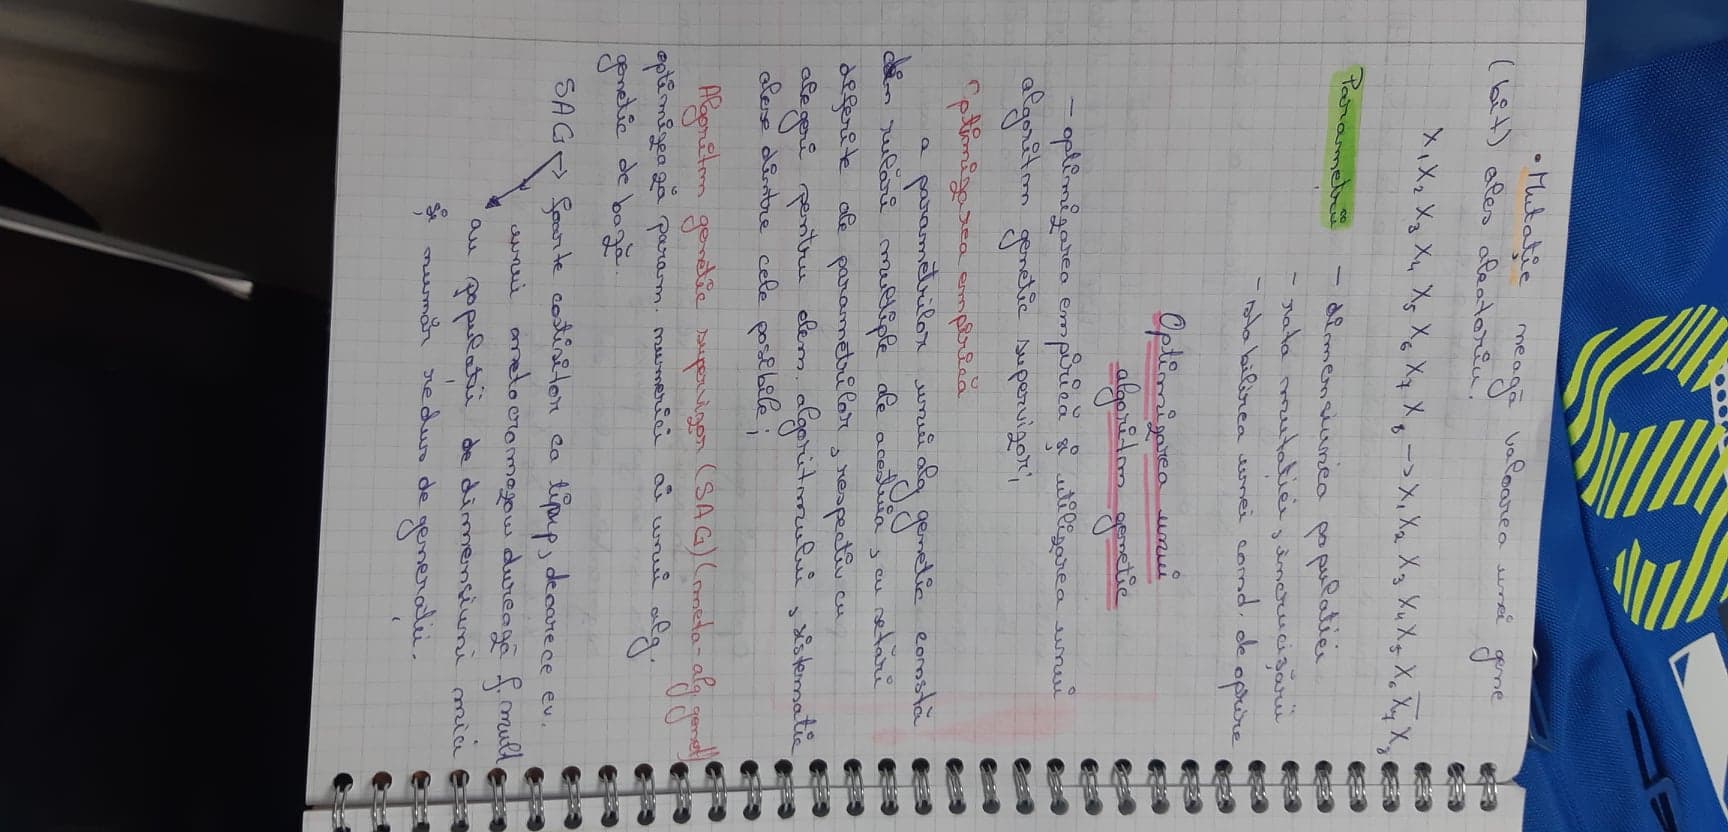 • Mutație neagă valoarea unei gene
(bit) ales aleatoriu.
X₁ X₂ X₃ X₄ X₅ X₆ X₇ X₈ -> X₁ X₂ X₃ X₄ X₅ X₆ X̅₇ X₈
Parametrii - dimensiunea populatiei
- rata mutației, încrucișării
- stabilirea unei cond. de oprire
Optimizarea unui
algoritm genetic
- optimizarea empirică și utilizarea unui
algoritm genetic supervizor;
Optimizarea empirică
a parametrilor unui alg genetic constă
din rulări multiple ale acestuia, cu setări
diferite ale parametrilor, respectiv cu
alegeri pentru elem. algoritmului, sistematic
alese dintre cele posibile;
Algoritm genetic supervizor (SAG) (meta-alg. genet)
optimizează param. numerici ai unui alg.
genetic de bază.
SAG -> foarte costisitor ca timp, deoarece ev.
unui metacromozom durează f. mult
au populații de dimensiuni mici
și număr redus de generații.